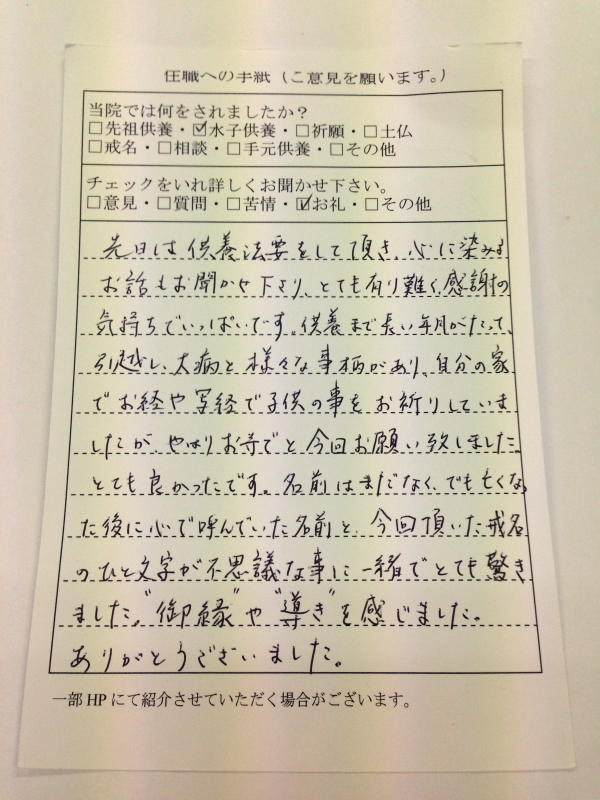 住職への手紙（ご意見を願います。）
当院では何をされましたか？
□先祖供養・☑水子供養・□祈願・□土仏
□戒名・□相談・□手元供養・□その他
チェックをいれ詳しくお聞かせ下さい。
□意見・□質問・□苦情・☑お礼・□その他
先日は供養法要をして頂き、心に染みる
お話もお聞かせ下さり、とても有り難く、感謝の
気持ちでいっぱいです。供養まで長い年月がたって、
引越し、大病と様々な事柄があり、自分の家
でお経や写経で子供の事をお祈りしていま
したが、やはりお寺でと今回お願い致しました。
とても良かったです。名前はまだなく、でも亡くな
た後に心で呼んでいた名前と、今回頂いた戒名
のひと文字が不思議な事に一緒でとても驚き
ました。“御縁”や“導き”を感じました。
ありがとうございました。
一部HPにて紹介させていただく場合がございます。